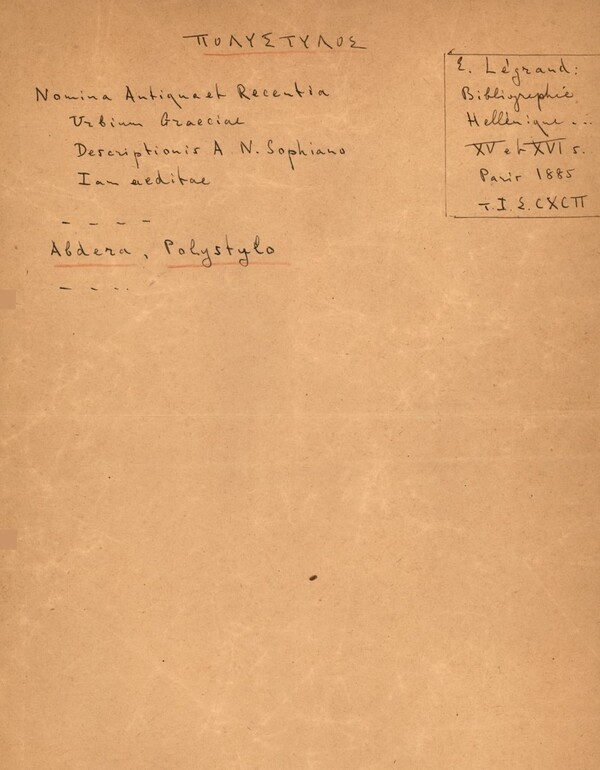 ΠΟΛΥΣΤΥΛΟΣ
E. Légrand:
Bibliographie
Hellénique ...
XV et XVI s.
Paris 1885
τ. I Σ. CXCII
Nomina Antiqua et Recentia
Urbium Graeciae
Descriptionis A N. Sophiano
Iam aeditae
- - - -
Abdera, Polystylo
- - - .